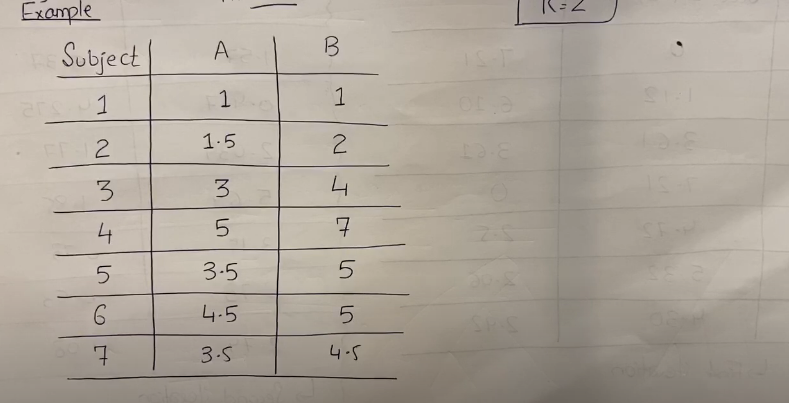 Example
K=2
Subject A B
1 1 1
2 1.5 2
3 3 4
4 5 7
5 3.5 5
6 4.5 5
7 3.5 4.5